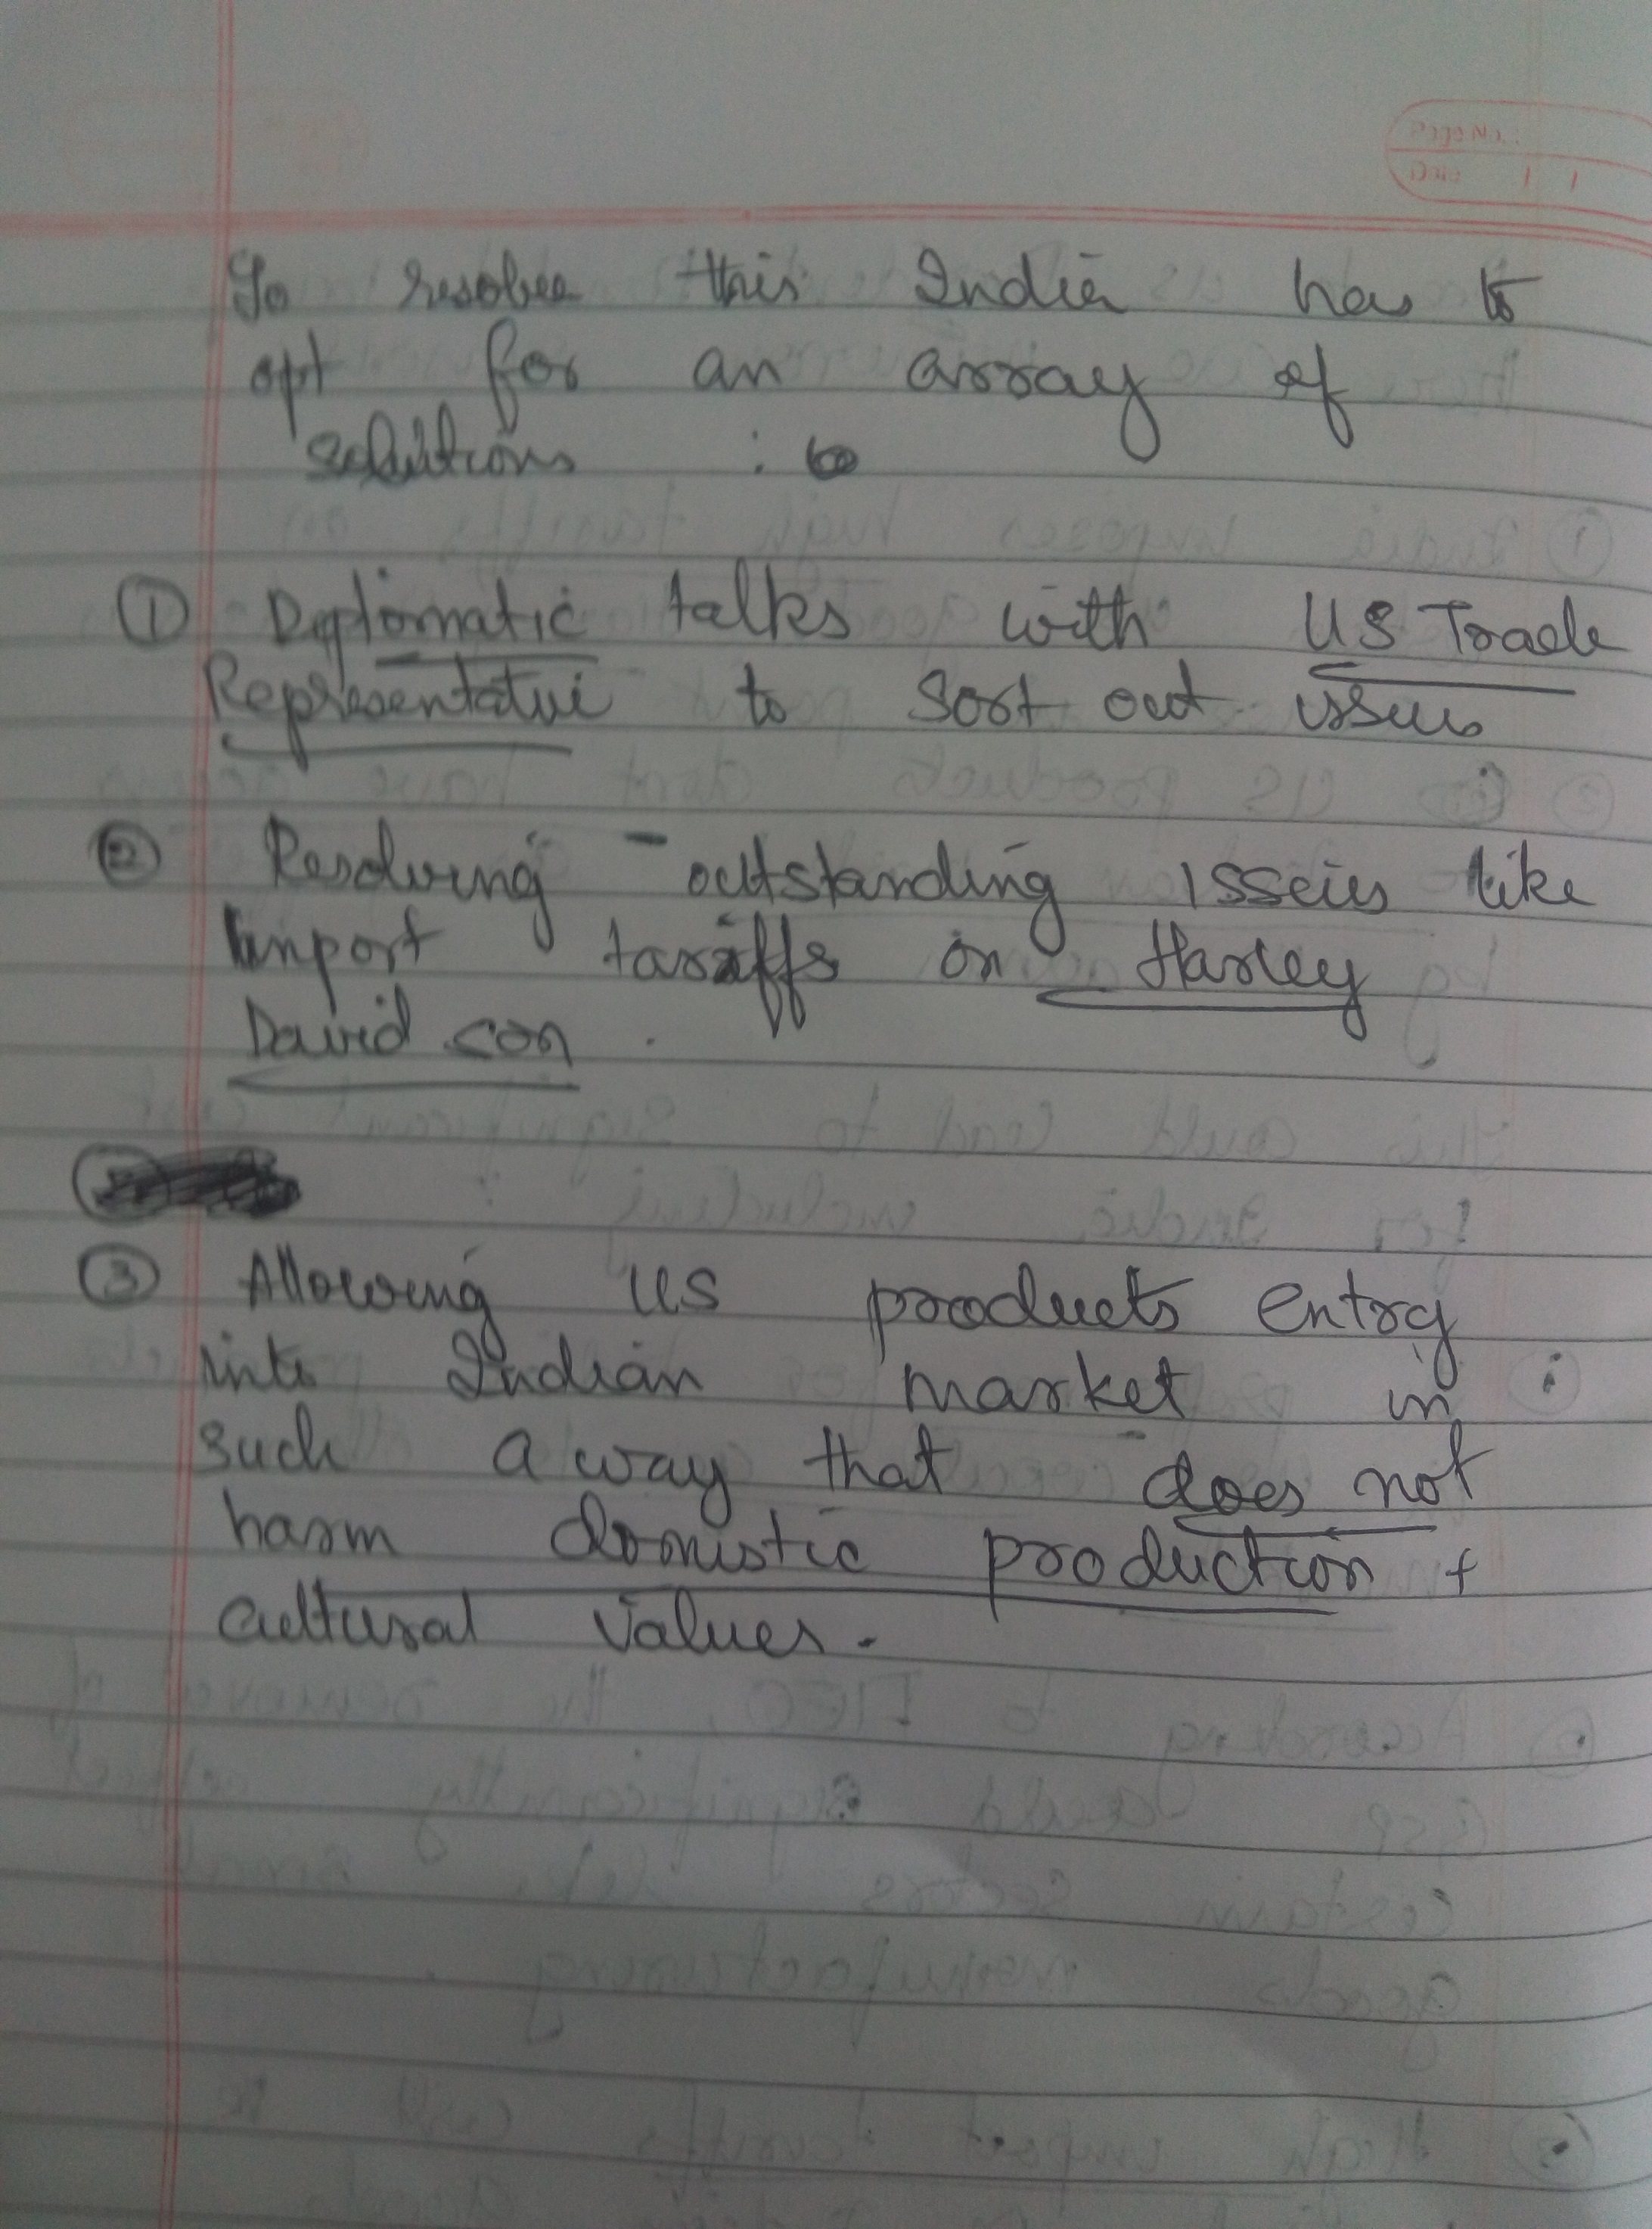 To resolve this India has to
opt for an array of
solutions :
① Diplomatic talks with US Trade
Representative to sort out issues
② Resolving outstanding issues like
import tariffs on Harley
David son.
③ Allowing US products entry
into Indian market in
such a way that does not
harm domistic production +
cultural values.